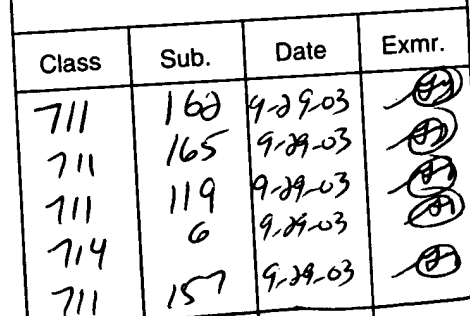 Class Sub. Date Exmr.
711 162 9-29-03
711 165 9-29-03
711 119 9-29-03
714 6 9-29-03
711 157 9-29-03